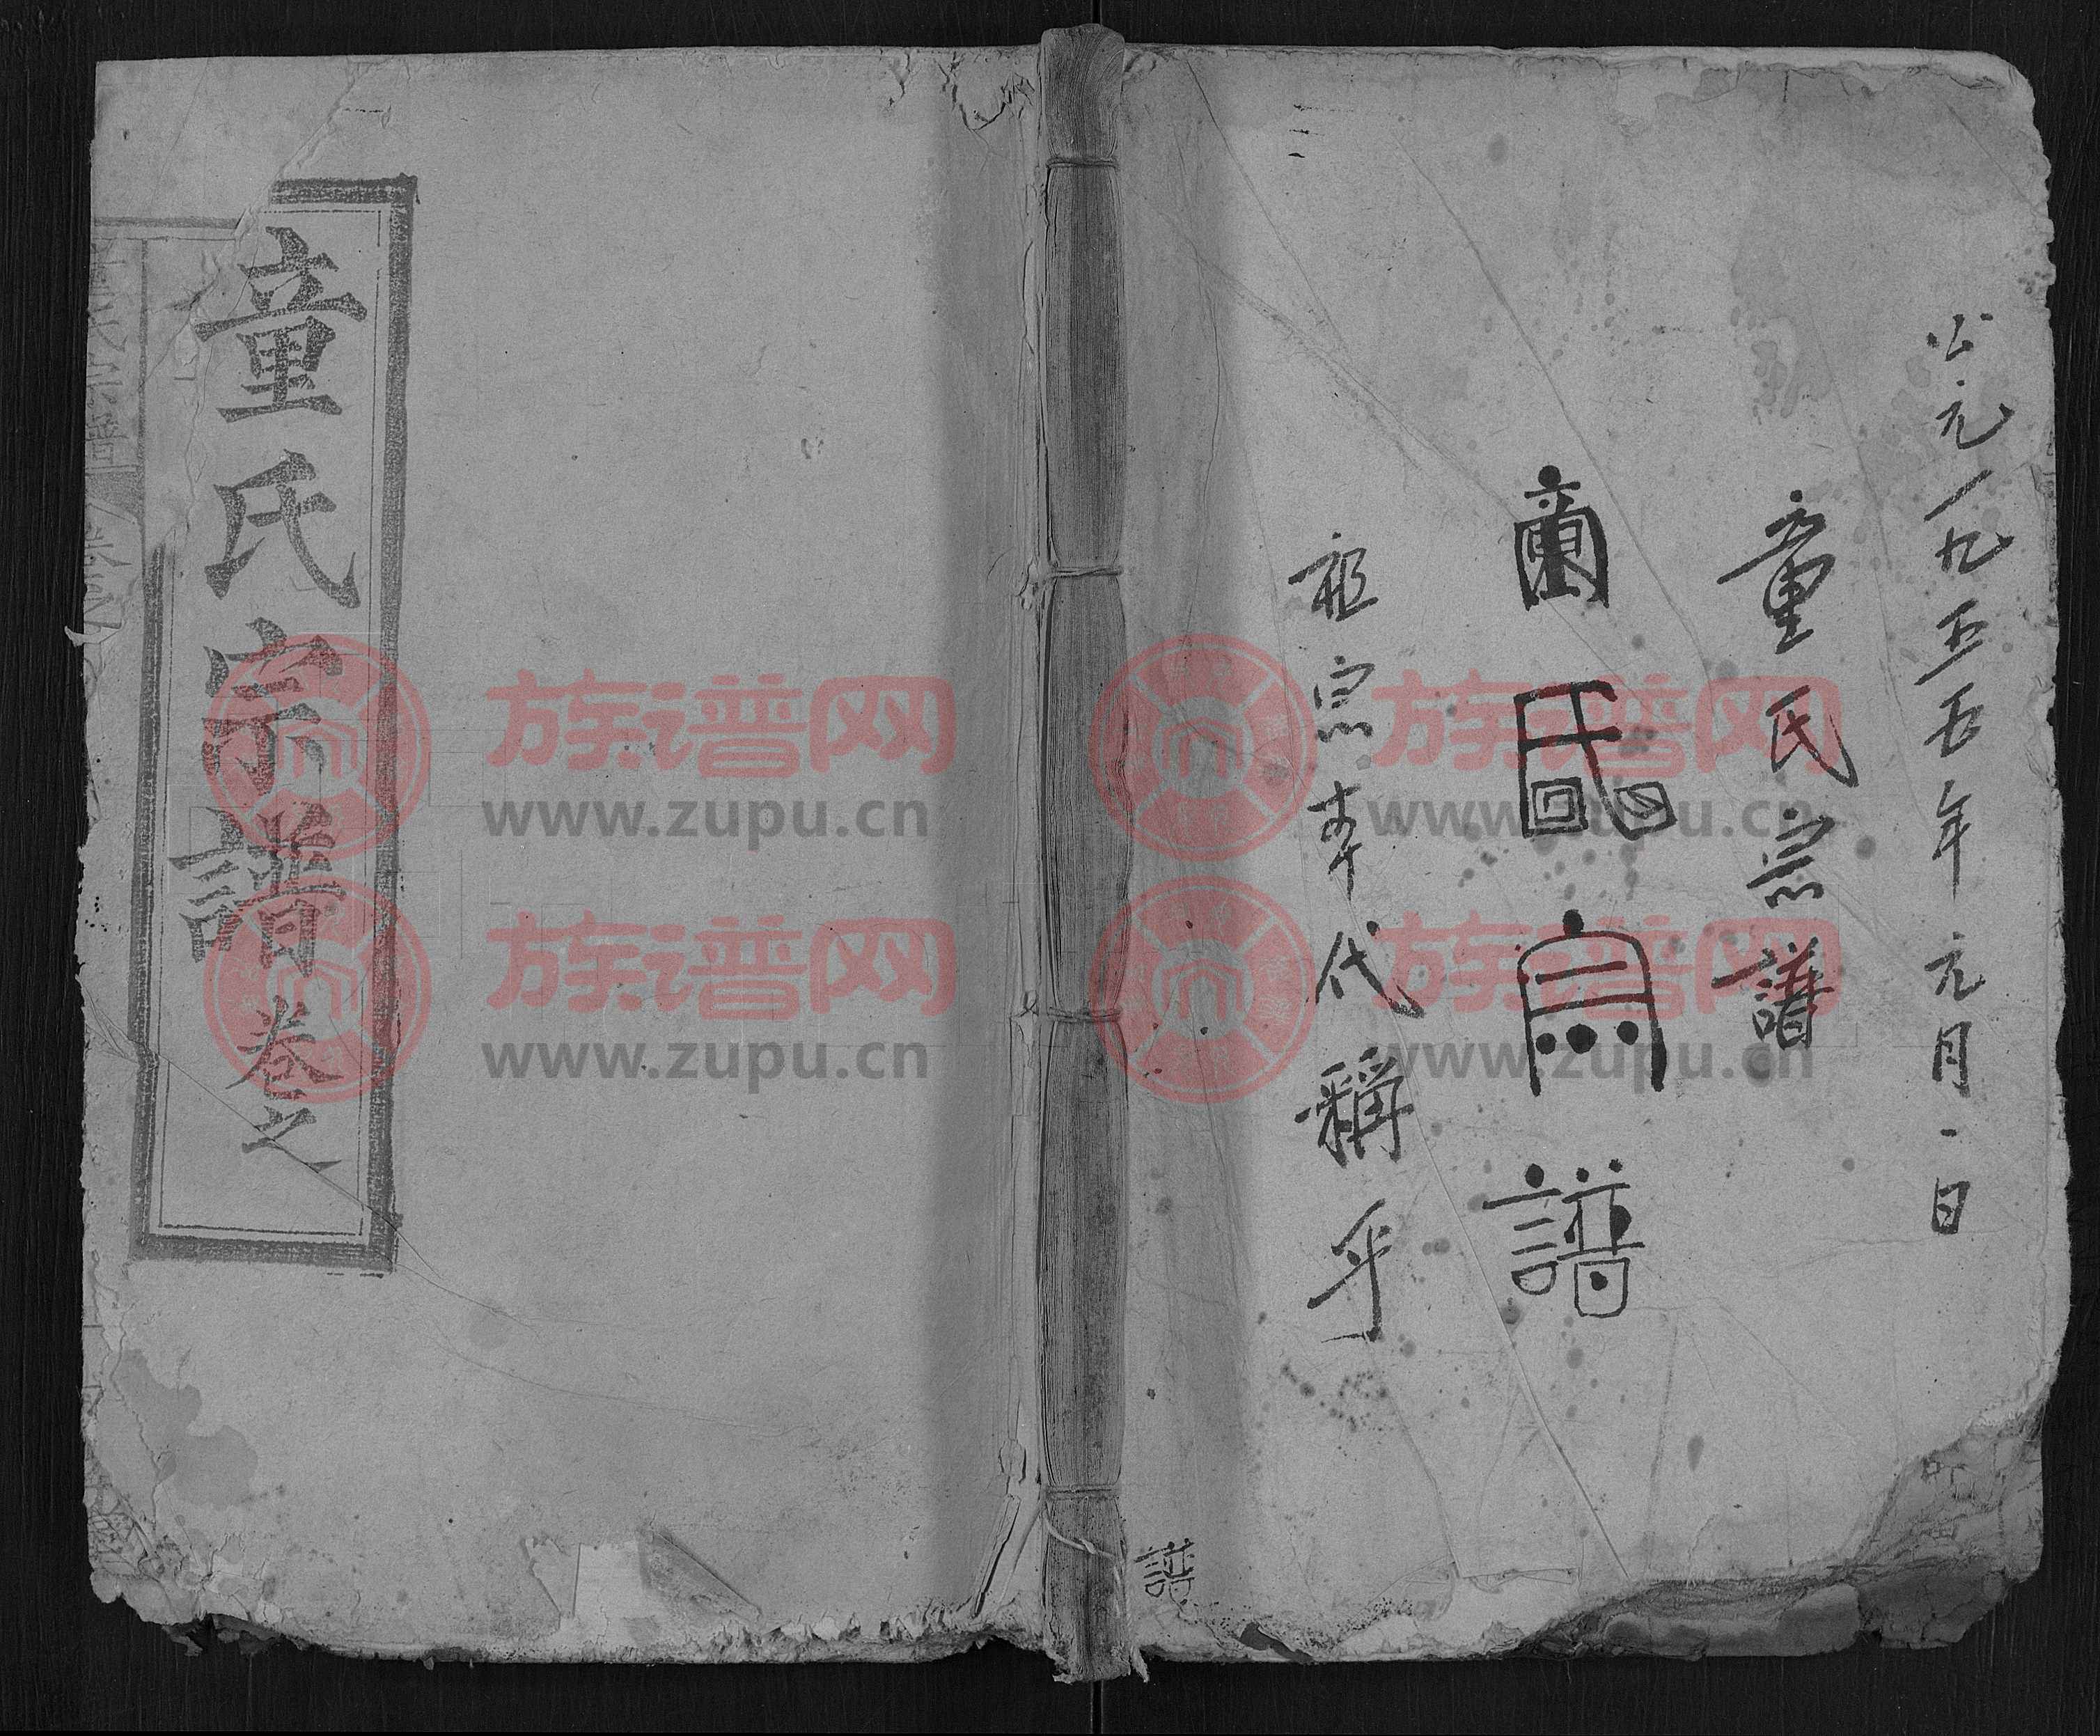 公元一九五五年元月一日
童氏宗譜
童氏宗譜
祖宗 代稱乎
譜
童氏宗譜卷之
族谱网
www.zupu.cn
族谱网
www.zupu.cn
族谱网
www.zupu.cn
族谱网
www.zupu.cn